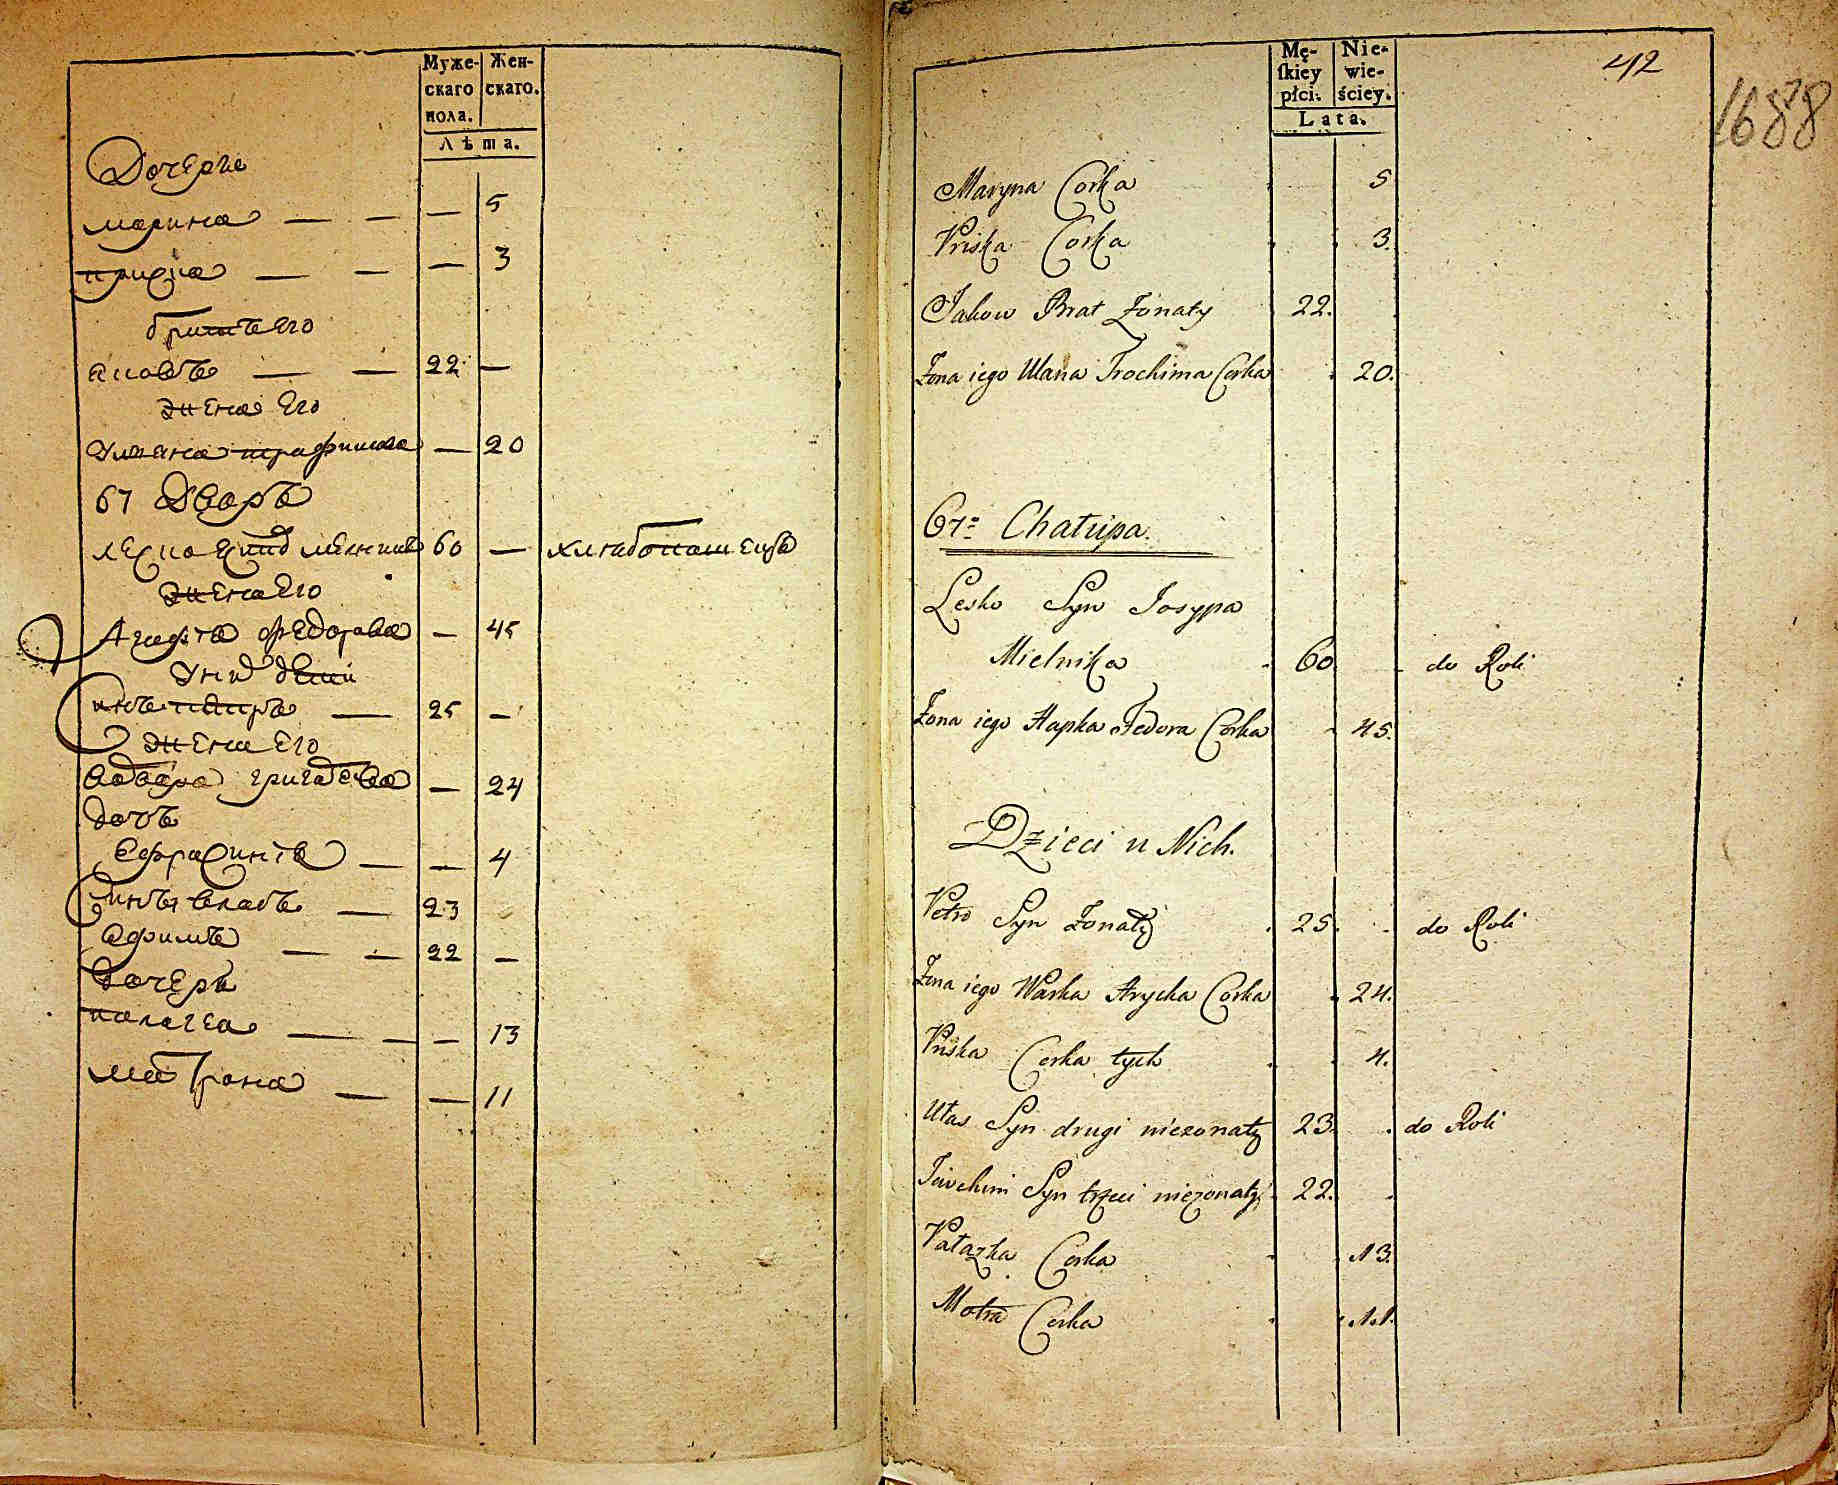 Муже-
скаго
пола.
Жен-
скаго.
Лѣта.
Дочери
марина — — — 5
приска — — — 3
братъ Его
яковъ — — 22 —
жена Его
Ульяна трафимова — 20
67 Дворъ
леско мелникъ 60 — хлѣбопашецъ
жена Его
Агафия федорова — 45
У них дети
Синъ петръ — 25 —
жена Его
варвара — 24
дочъ
Ефрасиния — — 4
Синъ власъ — 23
ефимъ — — 22 —
Дочери
палагея — — — 13
матрона — — 11
Mę-
skiey
płci.
Nie-
wie-
ściey.
Lata.
42
1688
Maryna Corka 5
Priska Corka 3.
Jakow Brat Żonaty 22.
Żona iego Ulana Trochima Corka 20.
67= Chałupa.
Lesko Syn Josypa
Mielnika 60 do Roli
Żona iego Hapka Fedora Corka 45.
Dzieci u Nich.
Petro Syn Żonaty 25. do Roli
Żona iego Warka Hrycka Corka 24.
Priska Corka tych 4.
Ułas Syn drugi nieżonaty 23. do Roli
Jawchim Syn trzeci nieżonaty 22.
Pałazka Corka 13.
Motra Corka 11.